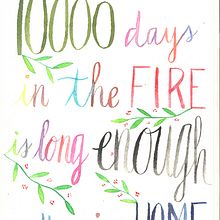 10000 days
in the FIRE
is long enough
HOME